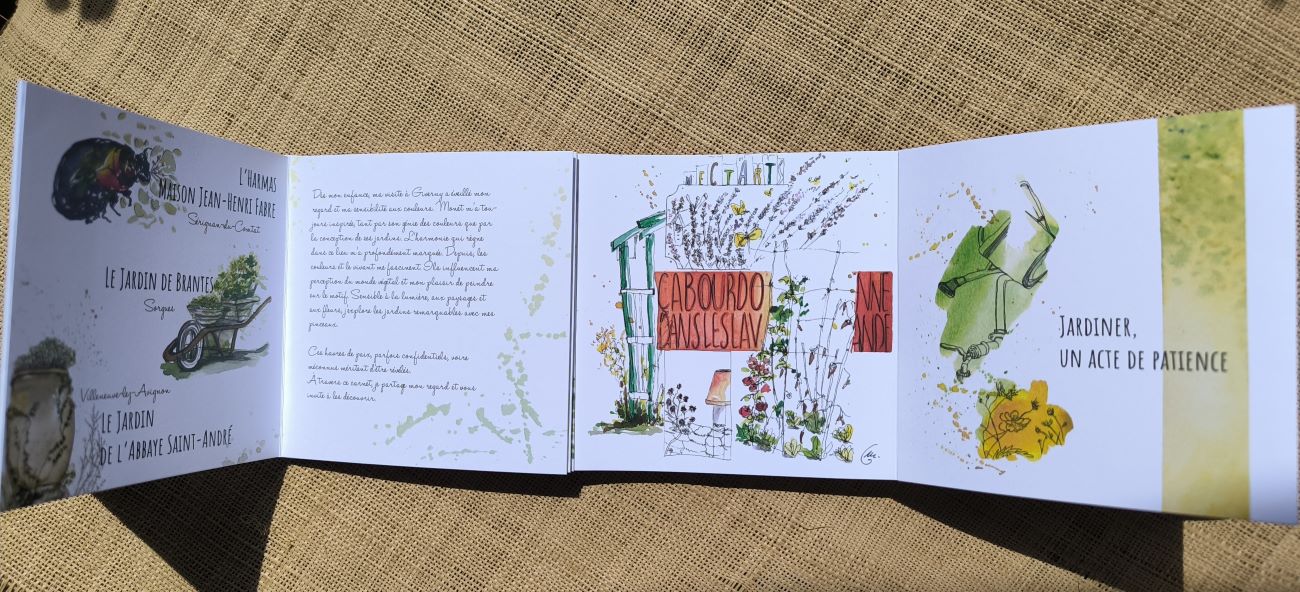 L'HARMAS
MAISON JEAN-HENRI FABRE
Sérignan-du-Comtat
LE JARDIN DE BRANTES
Sorgues
Villeneuve-lez-Avignon
LE JARDIN
DE L'ABBAYE SAINT-ANDRÉ
Dès mon enfance, ma visite à Giverny a éveillé mon
regard et ma sensibilité aux couleurs. Monet m'a tou-
jours inspirée, tant par son génie des couleurs que par
la conception de ses jardins. L'harmonie qui règne
dans ce lieu m'a profondément marquée. Depuis, les
couleurs et le vivant me fascinent. Ils influencent ma
perception du monde végétal et mon plaisir de peindre
sur le motif. Sensible à la lumière, aux paysages et
aux fleurs, j'explore les jardins remarquables avec mes
pinceaux.
Ces havres de paix, parfois confidentiels, voire
méconnus méritent d'être révélés.
A travers ce carnet, je partage mon regard et vous
invite à les découvrir.
NECTARTS
CABOURDO
DANSLESLAV
NNE
ANDE
JARDINER,
UN ACTE DE PATIENCE